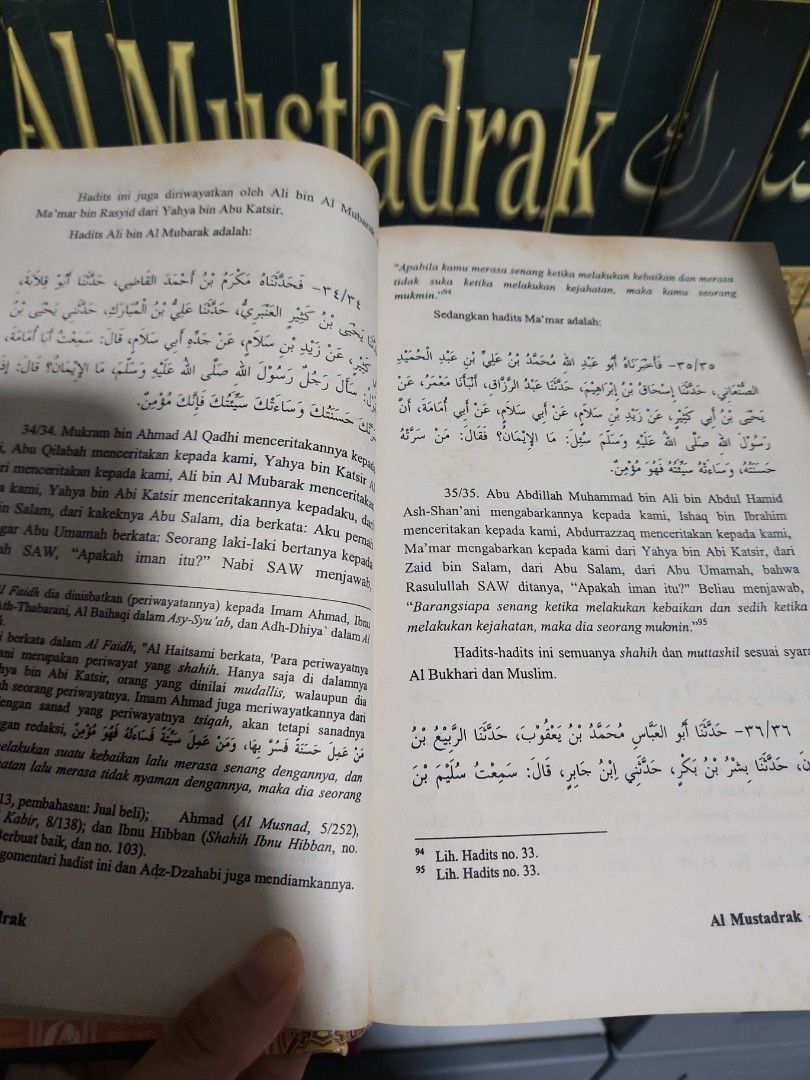 Al Mustadrak
Hadits ini juga diriwayatkan oleh Ali bin Al Mubarak
Ma'mar bin Rasyid dari Yahya bin Abu Katsir.
Hadits Ali bin Al Mubarak adalah:
٣٤/٣٤- فَحَدَّثَنَاهُ مَكْرَمُ بْنُ أَحْمَدَ الْقَاضِي، حَدَّثَنَا أَبُو قِلَابَةَ،
يَحْيَى بْنُ كَثِيْرٍ الْعَنْبَرِيُّ، حَدَّثَنَا عَلِيُّ بْنُ الْمُبَارَكِ، حَدَّثَنِي يَحْيَى بْنُ
كَثِيْرٍ، عَنْ زَيْدِ بْنِ سَلاَمٍ، عَنْ جَدِّهِ أَبِي سَلاَمٍ، قَالَ: سَمِعْتُ أَبَا أُمَامَةَ،
سَأَلَ رَجُلٌ رَسُوْلَ اللهِ صَلَّى اللهُ عَلَيْهِ وَسَلَّمَ، مَا الإِيْمَانُ؟ قَالَ: إِذَا
حَسَنَتُكَ وَسَاءَتْكَ سَيِّئَتُكَ فَإِنَّكَ مُؤْمِنٌ.
34/34. Mukram bin Ahmad Al Qadhi menceritakannya kepada
Abu Qilabah menceritakan kepada kami, Yahya bin Katsir Al
menceritakan kepada kami, Ali bin Al Mubarak menceritakan
kami, Yahya bin Abi Katsir menceritakannya kepadaku, dari
bin Salam, dari kakeknya Abu Salam, dia berkata: Aku pernah
Abu Umamah berkata: Seorang laki-laki bertanya kepada
SAW, "Apakah iman itu?" Nabi SAW menjawab,
Al Faidh dia dinisbatkan (periwayatannya) kepada Imam Ahmad, Ibnu
Ath-Thabarani, Al Baihaqi dalam Asy-Syu'ab, dan Adh-Dhiya` dalam Al
berkata dalam Al Faidh, "Al Haitsami berkata, 'Para periwayatnya
merupakan periwayat yang shahih. Hanya saja di dalamnya
bin Abi Katsir, orang yang dinilai mudallis, walaupun dia
seorang periwayatnya. Imam Ahmad juga meriwayatkannya dari
dengan sanad yang periwayatnya tsiqah, akan tetapi sanadnya
redaksi, مَنْ عَمِلَ حَسَنَةً فَسُرَّ بِهَا، وَمَنْ عَمِلَ سَيِّئَةً فَسَاءَتْهُ فَهُوَ مُؤْمِنٌ
melakukan suatu kebaikan lalu merasa senang dengannya, dan
lalu merasa tidak nyaman dengannya, maka dia seorang
13, pembahasan: Jual beli); Ahmad (Al Musnad, 5/252),
Kabir, 8/138); dan Ibnu Hibban (Shahih Ibnu Hibban, no.
Berbuat baik, dan no. 103).
hadist ini dan Adz-Dzahabi juga mendiamkannya.
"Apabila kamu merasa senang ketika melakukan kebaikan dan merasa
tidak suka ketika melakukan kejahatan, maka kamu seorang
mukmin."94
Sedangkan hadits Ma'mar adalah:
٣٥/٣٥- فَأَخْبَرَنَاهُ أَبُو عَبْدِ اللهِ مُحَمَّدُ بْنُ عَلِيِّ بْنِ عَبْدِ الْحَمِيْدِ
الصَّنْعَانِي، حَدَّثَنَا إِسْحَاقُ بْنُ إِبْرَاهِيْمَ، حَدَّثَنَا عَبْدُ الرَّزَّاقِ، أَنْبَأَنَا مَعْمَرٌ، عَنْ
يَحْيَى بْنِ أَبِي كَثِيْرٍ، عَنْ زَيْدِ بْنِ سَلاَمٍ، عَنْ أَبِي سَلاَمٍ، عَنْ أَبِي أُمَامَةَ، أَنَّ
رَسُوْلَ اللهِ صَلَّى اللهُ عَلَيْهِ وَسَلَّمَ سُئِلَ: مَا الإِيْمَانُ؟ فَقَالَ: مَنْ سَرَّتْهُ
حَسَنَتُهُ، وَسَاءَتْهُ سَيِّئَتُهُ فَهُوَ مُؤْمِنٌ.
35/35. Abu Abdillah Muhammad bin Ali bin Abdul Hamid
Ash-Shan'ani mengabarkannya kepada kami, Ishaq bin Ibrahim
menceritakan kepada kami, Abdurrazzaq menceritakan kepada kami,
Ma'mar mengabarkan kepada kami dari Yahya bin Abi Katsir, dari
Zaid bin Salam, dari Abu Salam, dari Abu Umamah, bahwa
Rasulullah SAW ditanya, "Apakah iman itu?" Beliau menjawab,
"Barangsiapa senang ketika melakukan kebaikan dan sedih ketika
melakukan kejahatan, maka dia seorang mukmin."95
Hadits-hadits ini semuanya shahih dan muttashil sesuai
Al Bukhari dan Muslim.
٣٦/٣٦- حَدَّثَنَا أَبُو الْعَبَّاسِ مُحَمَّدُ بْنُ يَعْقُوْبَ، حَدَّثَنَا الرَّبِيْعُ بْنُ
حَدَّثَنَا بِشْرُ بْنُ بَكْرٍ، حَدَّثَنِي اِبْنُ جَابِرٍ، قَالَ: سَمِعْتُ سُلَيْمَ بْنَ
94 Lih. Hadits no. 33.
95 Lih. Hadits no. 33.
Al Mustadrak